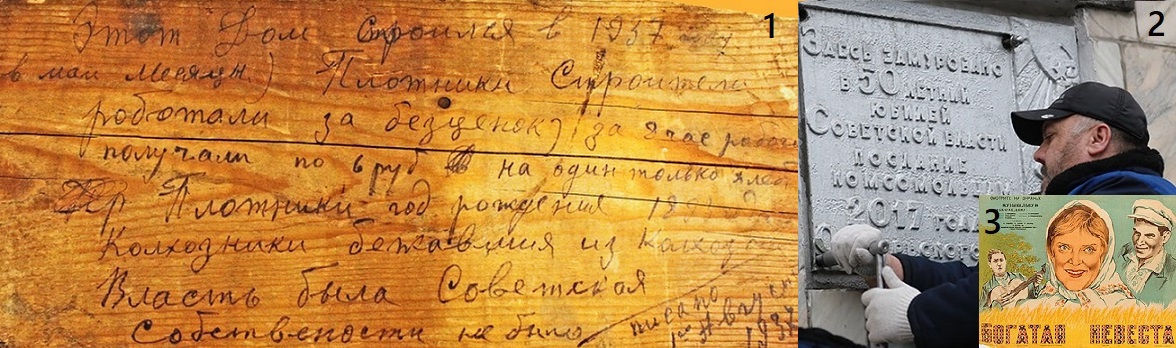 1
Этот Дом строился в 1937 году
в мая месяцы) Плотники Строители
работали за безценок) за 8 час работы
получали по 6 руб на один только хлеб
Плотники год рождения
Колхозники бежавшия из Колхоза
Власть была Советская
Собствености не было
писано
1937
2
Здесь замуровано
в 50 летний
юбилей
Советской власти
послание
комсомольцам
2017 года
3
СМОТРИТЕ НА ЭКРАНАХ
БОГАТАЯ НЕВЕСТА